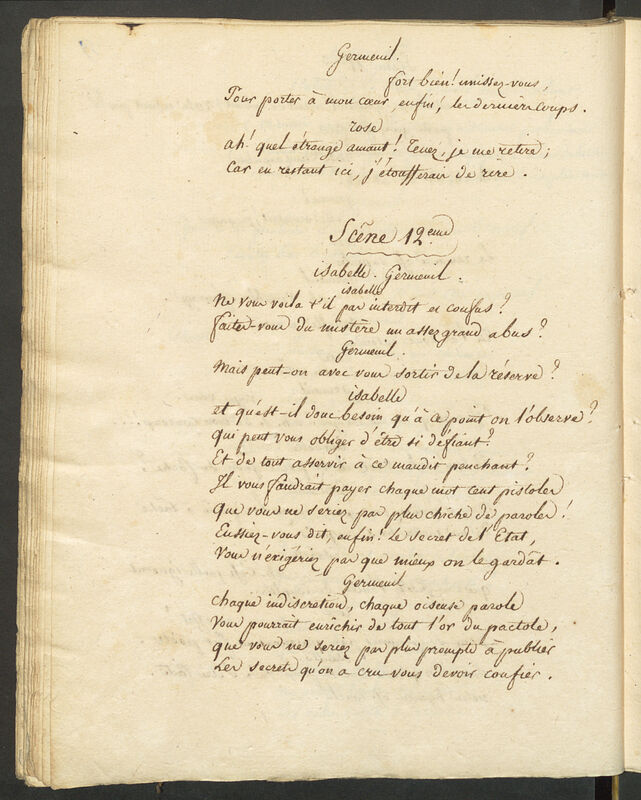 Germeuil.
fort bien! unissez-vous,
Pour porter à mon cœur, enfin, les derniers coups.
rose
ah! quel étrange amant! Tenez, je me retire;
Car en restant ici, j'étoufferais de rire.
Scêne 12eme
isabelle. Germeuil.
isabelle
Ne vous voila t'il pas interdit et confus?
faites-vous du mistère un assez grand abus?
Germeuil.
Mais peut-on avec vous sortir de la réserve?
isabelle
et qu'est-il donc besoin qu'à ce point on l'observe?
qui peut vous obliger d'être si défiant?
Et de tout asservir à ce maudit penchant?
Il vous faudrait payer chaque mot cent pistoles
Que vous ne seriez pas plus chiche de paroles!
Eussiez-vous dit, enfin! Le secret de l'Etat,
Vous n'exigeriez pas que mieux on le gardât.
Germeuil
chaque indiscretion, chaque oiseuse parole
Vous pourrait enrichir de tout l'or du pactole,
que vous ne seriez pas plus prompte à publier
Les secrets qu'on a cru vous devoir confier.